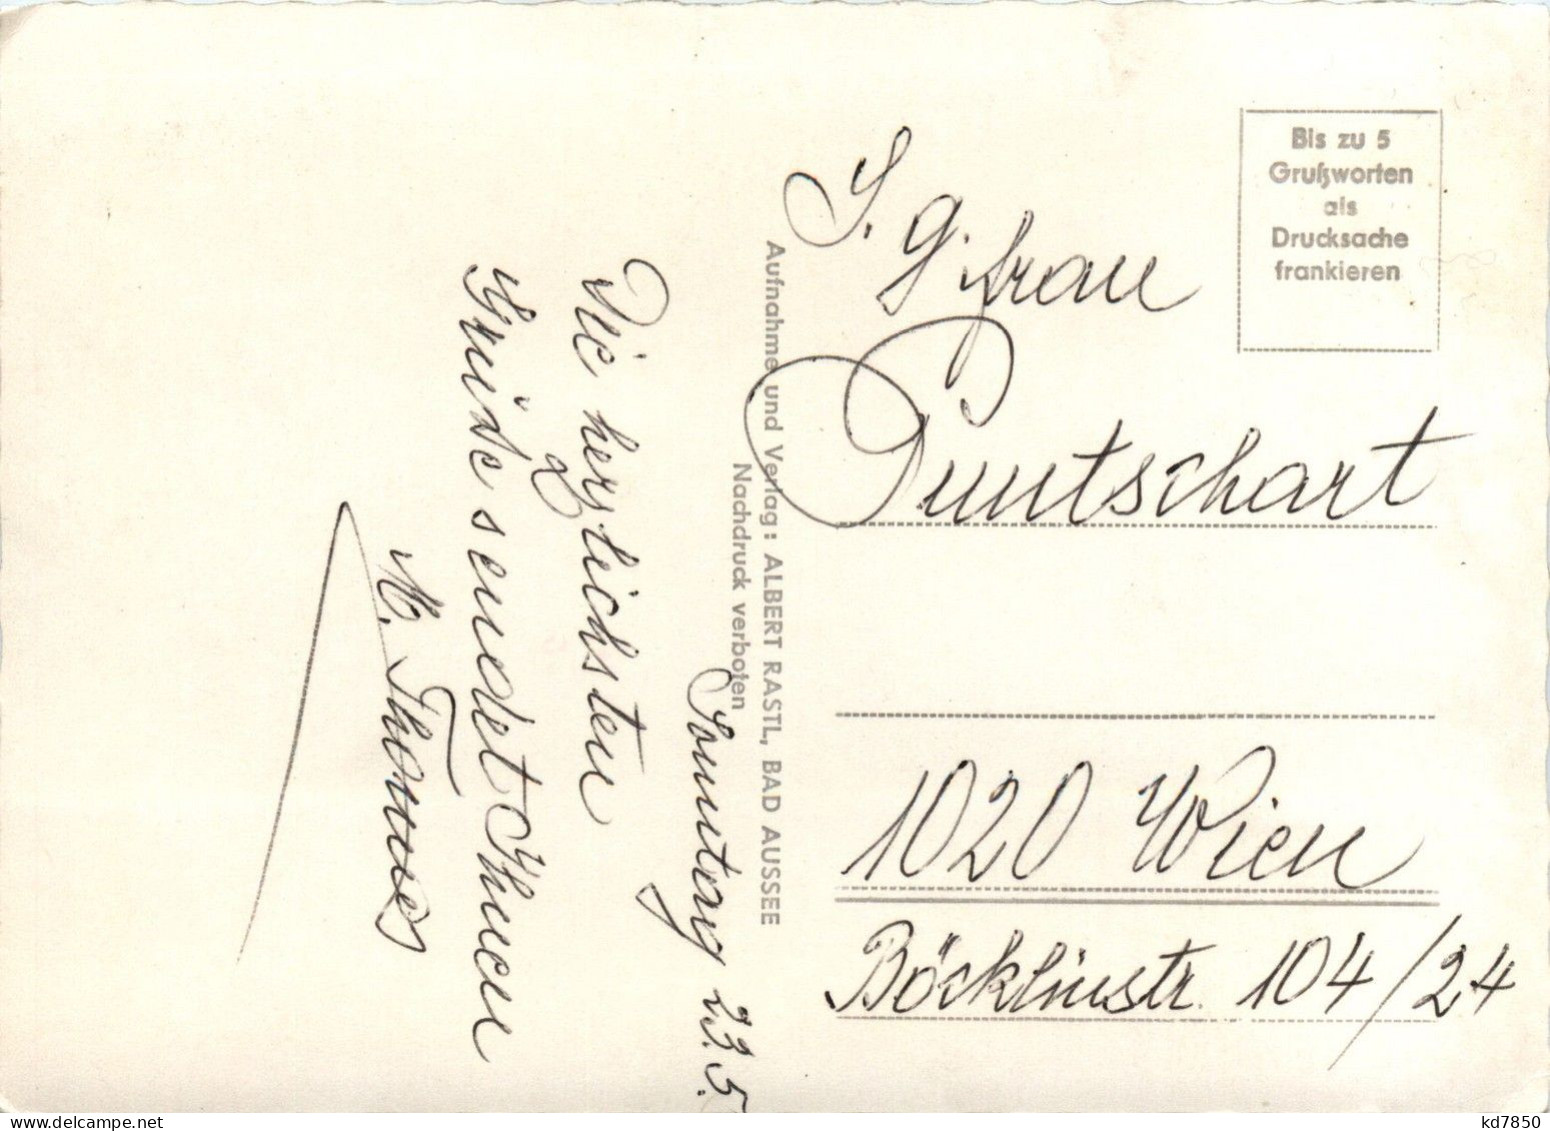 Sonntag 23.5.
Die herzlichsten
Grüße sendet Ihnen
M. Thomes
Aufnahme und Verlag: ALBERT RASTL, BAD AUSSEE
Nachdruck verboten
Bis zu 5
Grußworten
als
Drucksache
frankieren
S. g. Frau
Puntschart
1020 Wien
Böcklinstr. 104/24
www.delcampe.net
kd7850